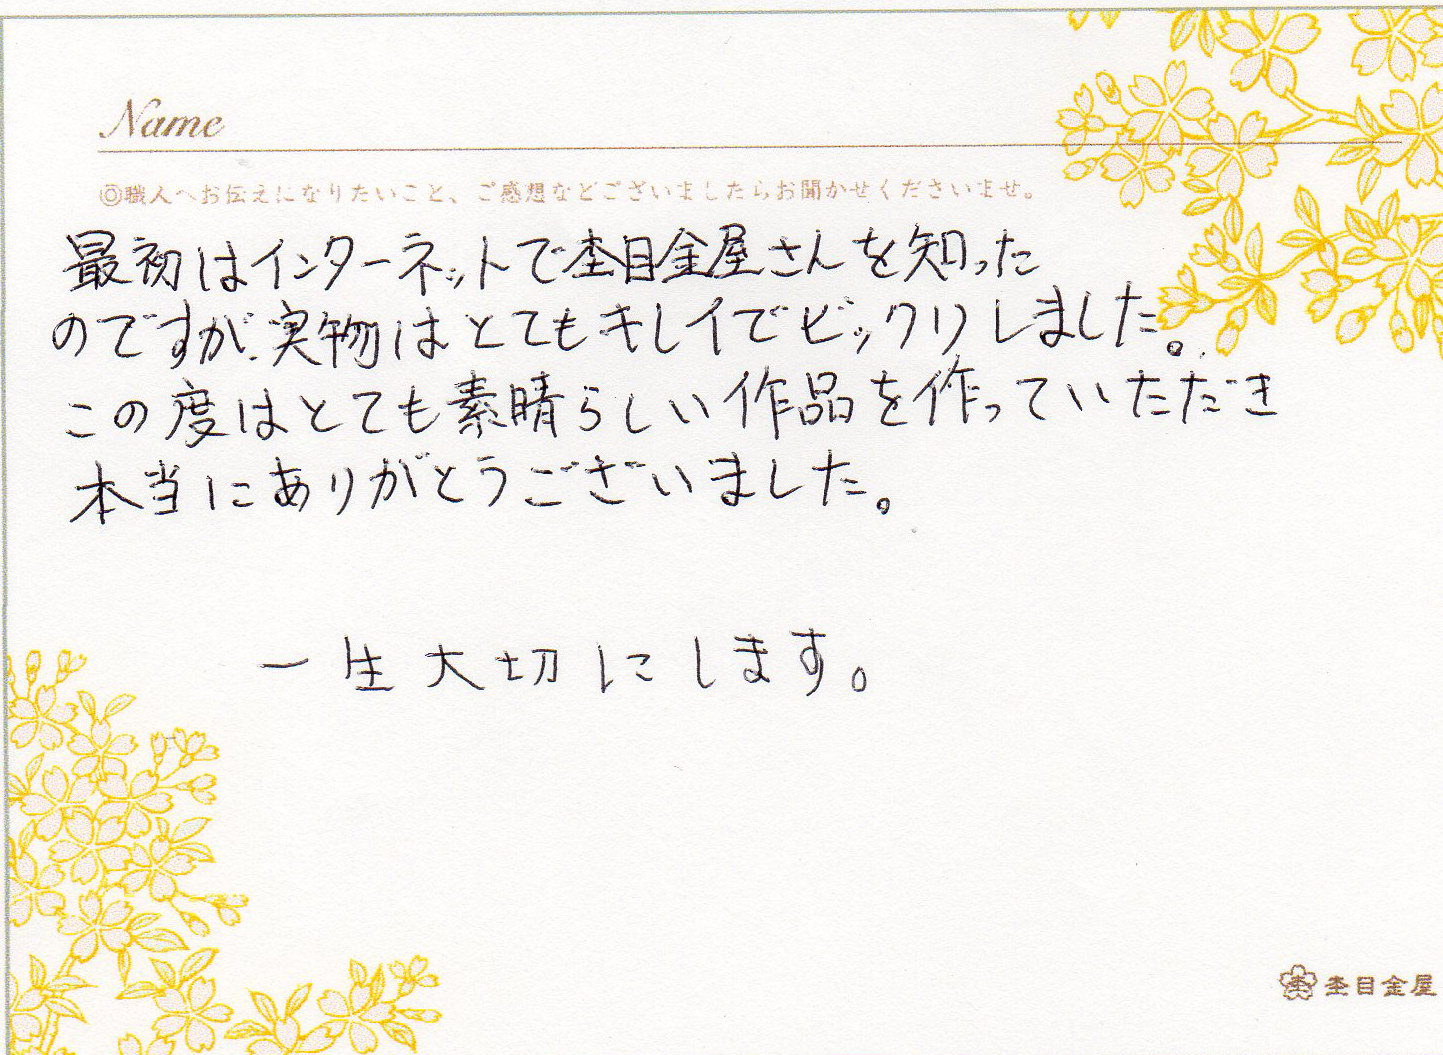 Name
◎職人へお伝えになりたいこと、ご感想などございましたらお聞かせくださいませ。
最初はインターネットで杢目金屋さんを知った
のですが、実物はとてもキレイでビックリしました。
この度はとても素晴らしい作品を作っていただき
本当にありがとうございました。
一生大切にします。
杢目金屋